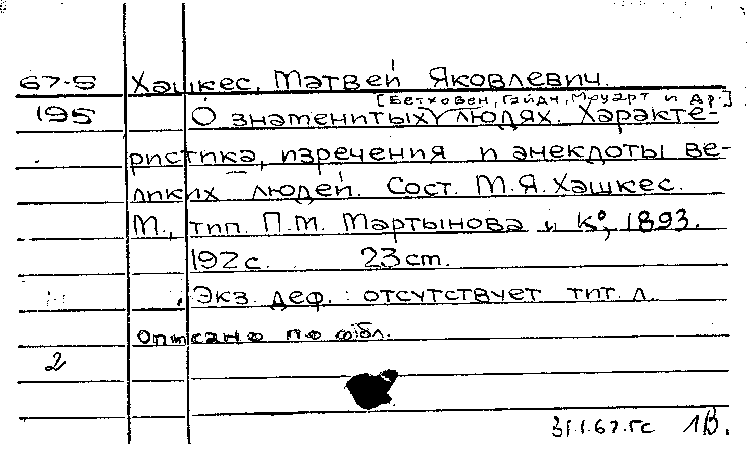 67-5 Хашкес, Матвей Яковлевич.
[Бетховен, Гайдн, Моцарт и др.]
195 О знаменитых людях. Характе-
ристика, изречения и анекдоты ве-
ликих людей. Сост. М.Я. Хашкес.
М., тип. П.М. Мартынова и К°, 1893.
192 с. 23 cm.
Экз. деф.: отсутствует тит. л.
Описано по обл.
2
1В.